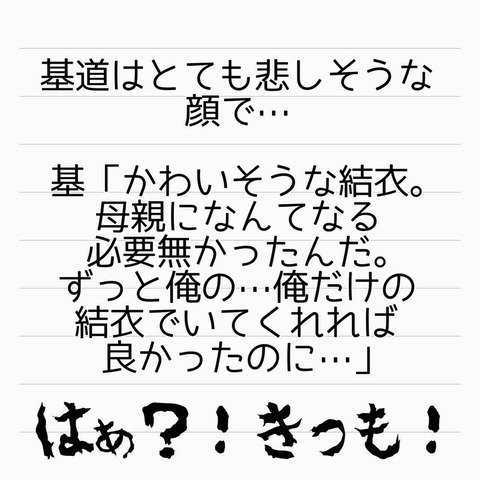 基道はとても悲しそうな
顔で…
基「かわいそうな結衣。
母親になんてなる
必要無かったんだ。
ずっと俺の…俺だけの
結衣でいてくれれば
良かったのに…」
はぁ?!きっも!